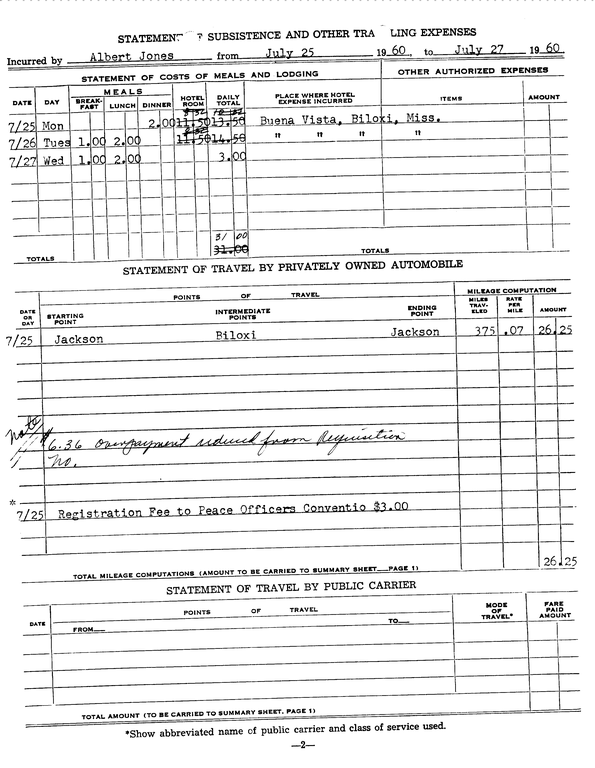 STATEMENT SUBSISTENCE AND OTHER TRA LING EXPENSES
Incurred by Albert Jones from July 25 1960, to July 27 1960
STATEMENT OF COSTS OF MEALS AND LODGING OTHER AUTHORIZED EXPENSES
DATE DAY MEALS BREAK-FAST LUNCH DINNER HOTEL ROOM DAILY TOTAL PLACE WHERE HOTEL EXPENSE INCURRED ITEMS AMOUNT
7/25 Mon 2.00 11.50 13.50 Buena Vista, Biloxi, Miss.
7/26 Tues 1.00 2.00 11.50 14.50 " " " "
7/27 Wed 1.00 2.00 3.00
31 00
TOTALS 31.00 TOTALS
STATEMENT OF TRAVEL BY PRIVATELY OWNED AUTOMOBILE
POINTS OF TRAVEL MILEAGE COMPUTATION
DATE OR DAY STARTING POINT INTERMEDIATE POINTS ENDING POINT MILES TRAV-ELED RATE PER MILE AMOUNT
7/25 Jackson Biloxi Jackson 375 .07 26.25
Note
$6.36 overpayment reduced from Requisition
No.
*
7/25 Registration Fee to Peace Officers Conventio $3.00
26.25
TOTAL MILEAGE COMPUTATIONS (AMOUNT TO BE CARRIED TO SUMMARY SHEET PAGE 1)
STATEMENT OF TRAVEL BY PUBLIC CARRIER
DATE POINTS OF TRAVEL MODE OF TRAVEL* FARE PAID AMOUNT
FROM TO
TOTAL AMOUNT (TO BE CARRIED TO SUMMARY SHEET, PAGE 1)
*Show abbreviated name of public carrier and class of service used.
—2—